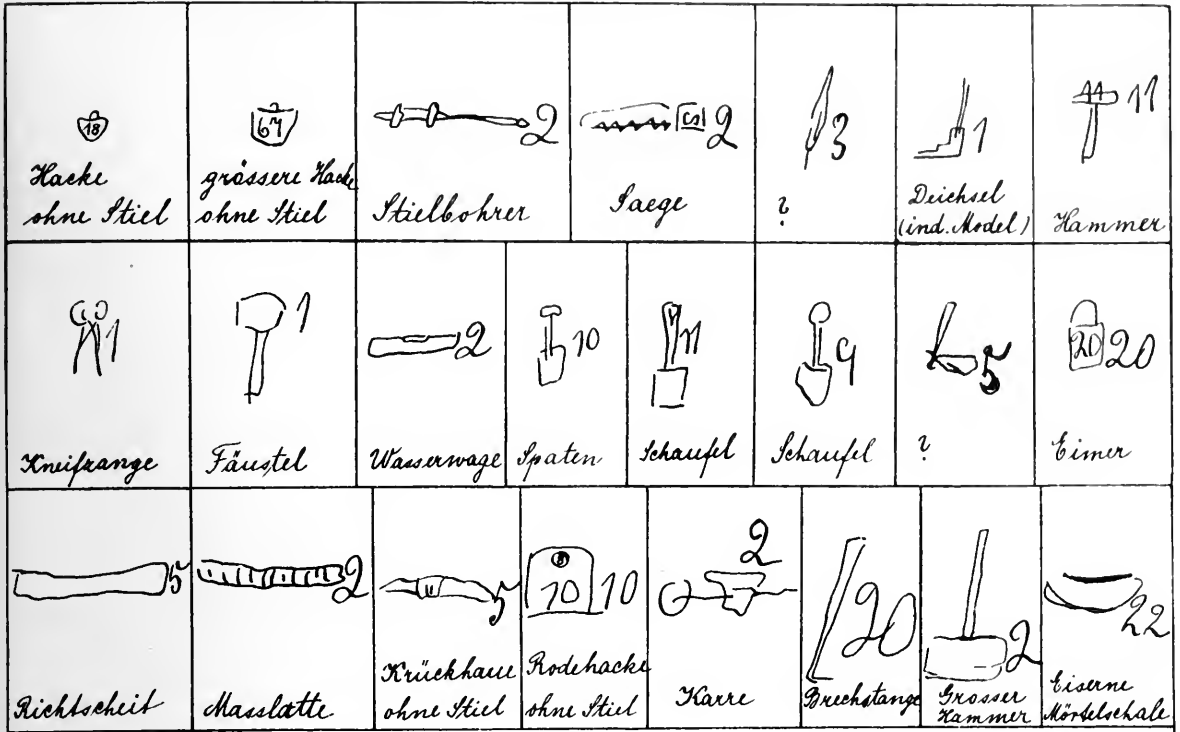 18
Hacke
ohne Stiel
67
grössere Hacke
ohne Stiel
2
Stielbohrer
2
Saege
3
?
1
Deichsel
(ind. Model)
11
Hammer
1
Kneifzange
1
Fäustel
2
Wasserwage
10
Spaten
11
Schaufel
9
Schaufel
5
?
20 20
Eimer
5
Richtscheit
2
Masslatte
5
Krückhaue
ohne Stiel
10 10
Rodehacke
ohne Stiel
2
Karre
20
Brechstange
2
Grosser
Hammer
22
Eiserne
Mörtelschale